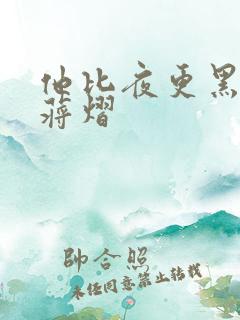 他比夜更黑
蒋熠
帥合照
未经同意禁止转载